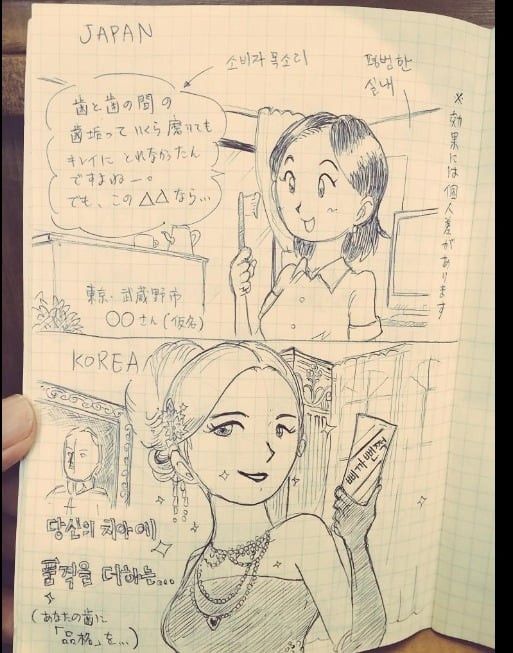 JAPAN
소비자 목소리
평범한
실내
歯と歯の間の
歯垢っていくら磨いても
キレイにとれなかったん
ですよねー。
でも、この△△なら…
※効果には個人差があります
東京・武蔵野市
○○さん(仮名)
KOREA
당신의 치아에
품격을 더하는...
(あなたの歯に
「品格」を…)